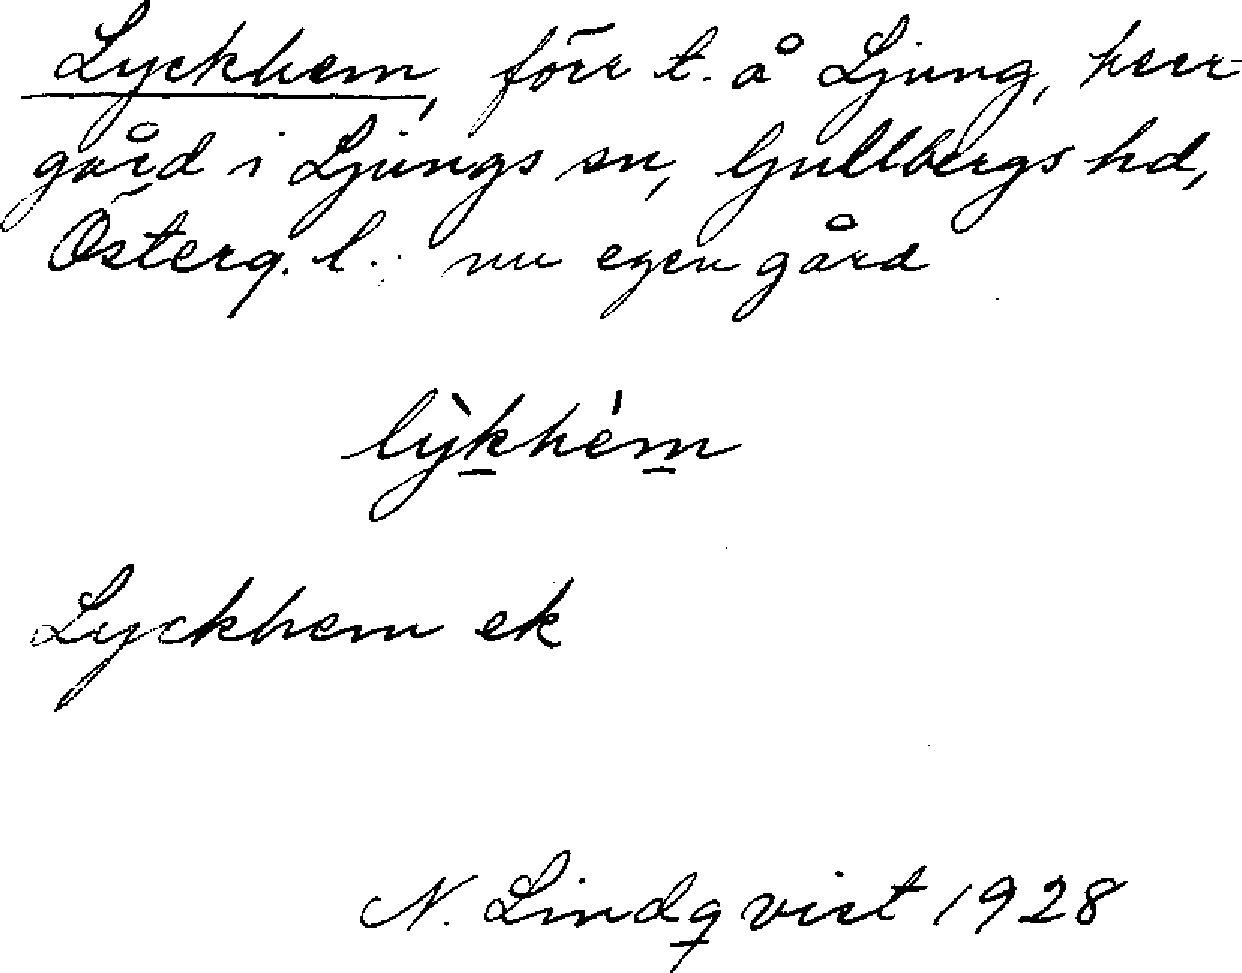 Lyckhem, förr t. å Ljung, herr-
gård i Ljungs sn, Gullbergs hd,
Österg. l. nu egen gård
lỳkhém
Lyckhem ek
N. Lindqvist 1928